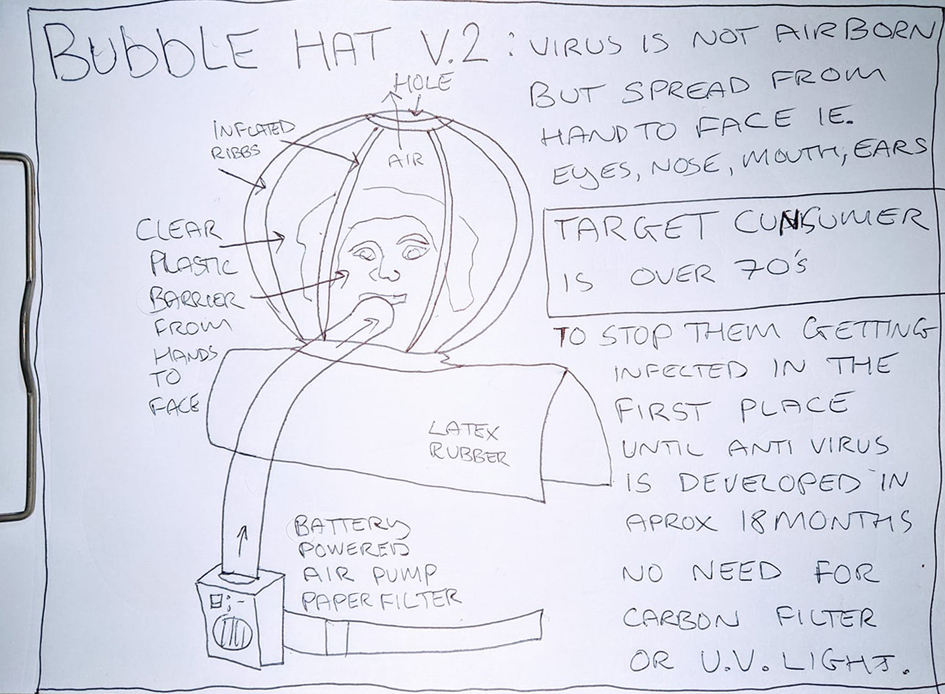 BUBBLE HAT V.2 : VIRUS IS NOT AIRBORN
BUT SPREAD FROM
HAND TO FACE IE.
EYES, NOSE, MOUTH, EARS
TARGET CUNSUMER
IS OVER 70's
TO STOP THEM GETTING
INFECTED IN THE
FIRST PLACE
UNTIL ANTI VIRUS
IS DEVELOPED IN
APROX 18 MONTHS
NO NEED FOR
CARBON FILTER
OR U.V. LIGHT.
HOLE
AIR
INFLATED
RIBBS
CLEAR
PLASTIC
BARRIER
FROM
HANDS
TO
FACE
LATEX
RUBBER
BATTERY
POWERED
AIR PUMP
PAPER FILTER